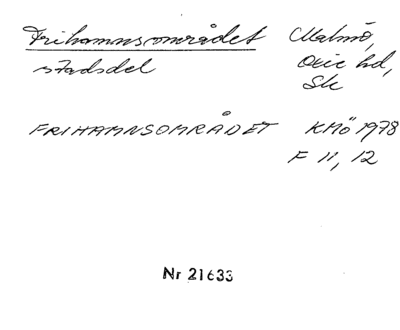 Frihamnsområdet Malmö,
stadsdel Oxie hd,
Sk
FRIHAMNSOMRÅDET KMö 1978
F 11, 12
Nr 21633